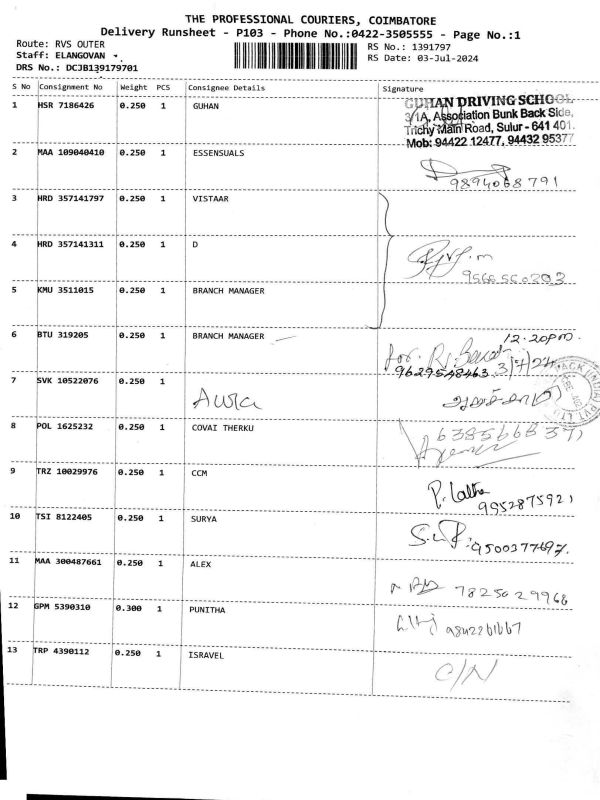 THE PROFESSIONAL COURIERS, COIMBATORE
Delivery Runsheet - P103 - Phone No.:0422-3505555 - Page No.:1
Route: RVS OUTER
RS No.: 1391797
Staff: ELANGOVAN
RS Date: 03-Jul-2024
DRS No.: DCJB139179701
S No Consignment No Weight PCS Consignee Details Signature
1 HSR 7186426 0.250 1 GUHAN
GUHAN DRIVING SCHOOL
3/1A, Association Bunk Back Side,
Trichy Main Road, Sulur - 641 401.
Mob: 94422 12477, 94432 95377
2 MAA 109040410 0.250 1 ESSENSUALS
9894068791
3 HRD 357141797 0.250 1 VISTAAR
4 HRD 357141311 0.250 1 D
5 KMU 3511015 0.250 1 BRANCH MANAGER
6 BTU 319205 0.250 1 BRANCH MANAGER
12.20pm.
for.
9629548463 3/7/24
7 SVK 10522076 0.250 1
8 POL 1625232 0.250 1 COVAI THERKU
9 TRZ 10029976 0.250 1 CCM
P. Latha
9952875921
10 TSI 8122405 0.250 1 SURYA
9500377697.
11 MAA 300487661 0.250 1 ALEX
7825029968
12 GPM 5390310 0.300 1 PUNITHA
13 TRP 4390112 0.250 1 ISRAVEL